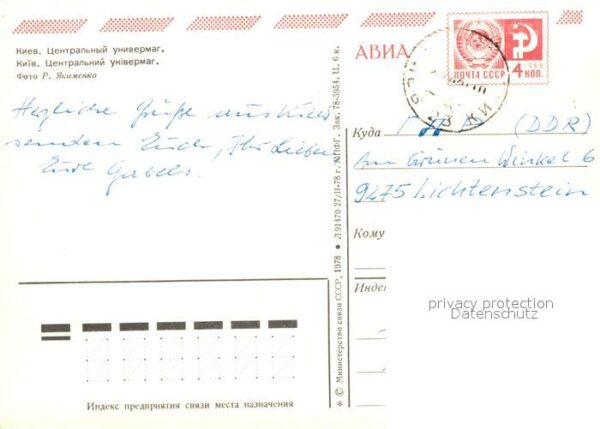 Киев. Центральный универмаг.
Київ. Центральний універмаг.
Фото Р. Якименко
АВИА
ПОЧТА СССР
4 КОП.
Herzliche Grüße aus Kiew
senden Euch, Ihr Lieben
Eure Gabels.
Куда ГДР (DDR)
Am Grünen Winkel 6
9275 Lichtenstein
Кому
Индек
privacy protection
Datenschutz
* © Министерство связи СССР, 1978 ● Л 91470 27/II-78 г. МПФГ. Зак. 78-5954. Ц. 6 к.
Индекс предприятия связи места назначения